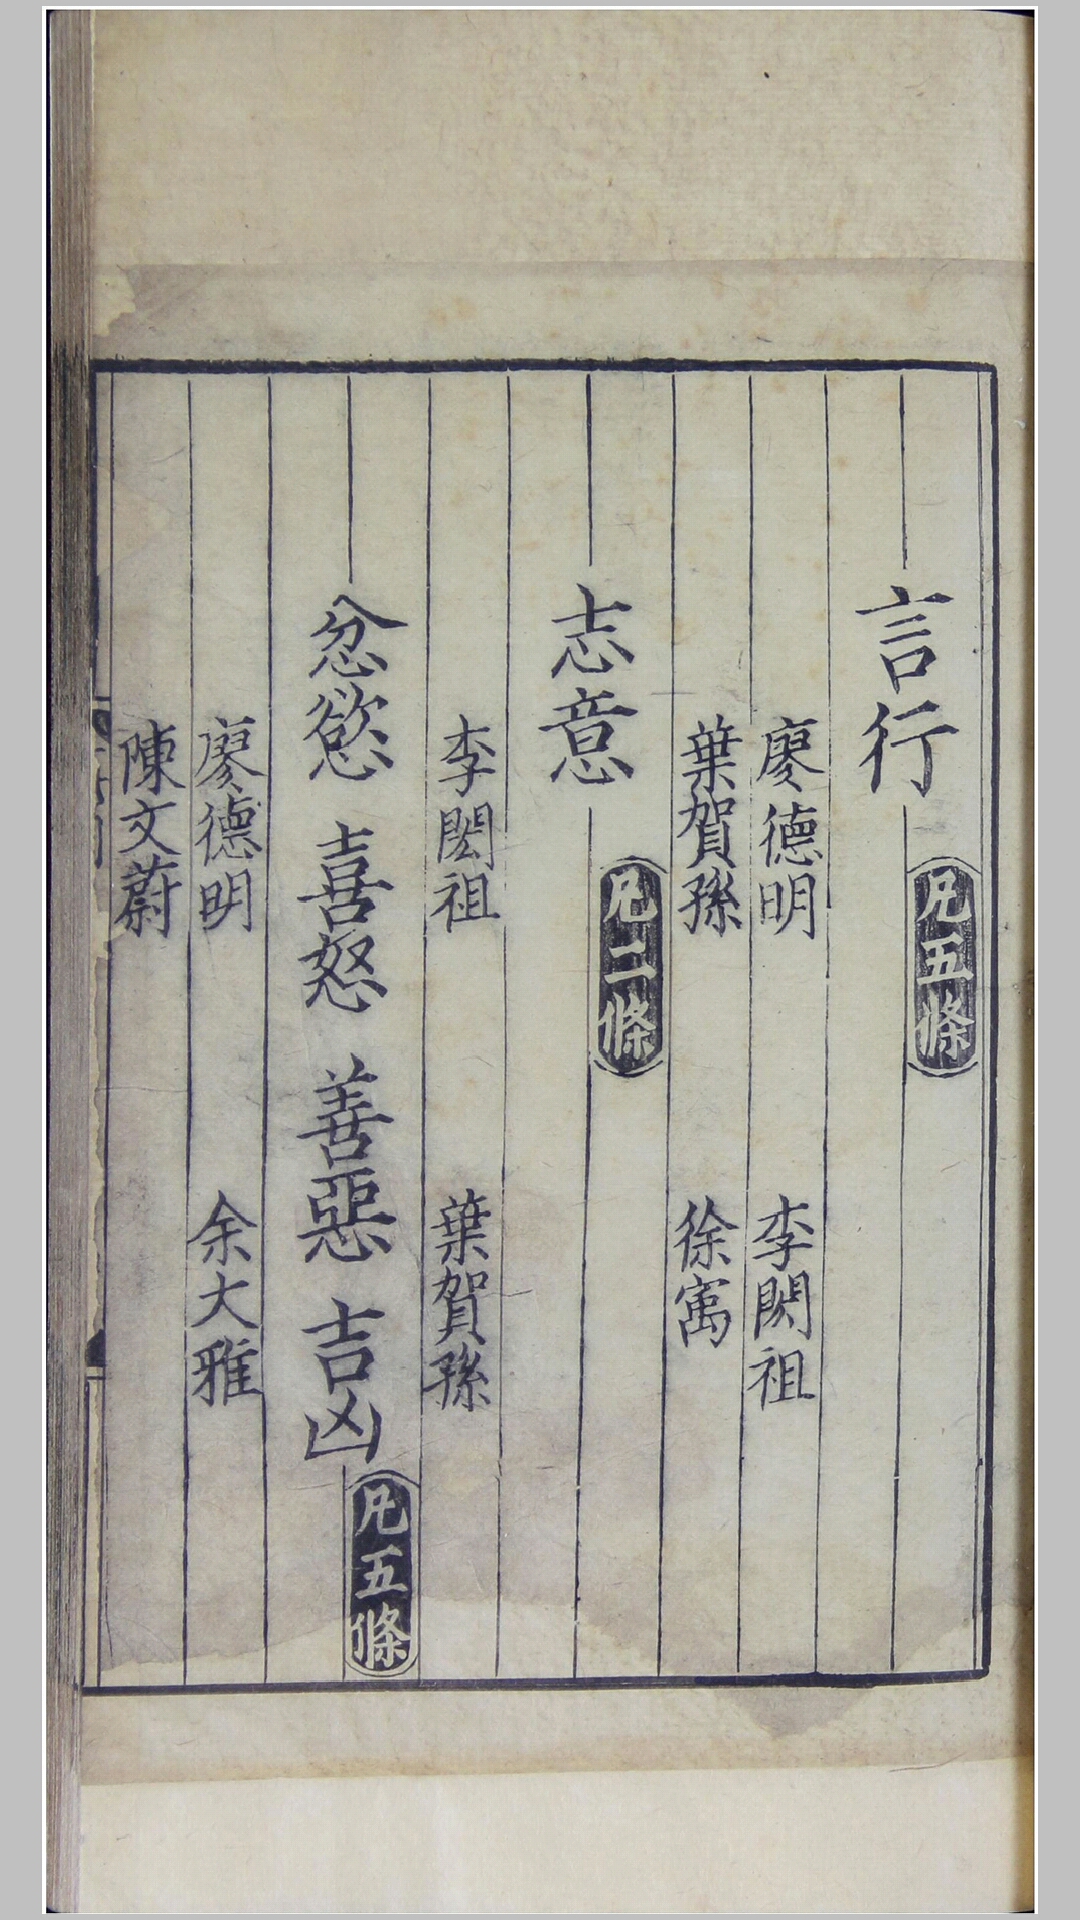 言行 凡五條
廖德明 李閎祖
葉賀孫 徐㝢
志意 凡二條
李閎祖 葉賀孫
忿慾 喜怒 善惡 吉凶 凡五條
廖德明 余大雅
陳文蔚